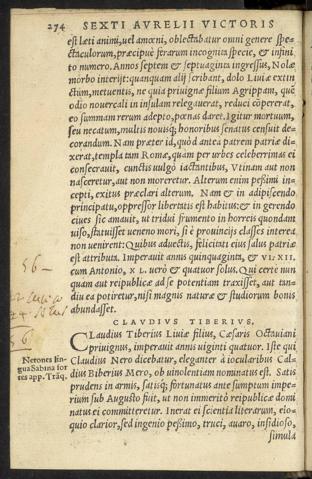 274 SEXTI AVRELII VICTORIS
est læti animi, uel amœni, oblectabatur omni genere spe-
ctaculorum, præcipuè ferarum incognita specie, & infini
to numero. Annos septem & septuaginta ingressus, Nolæ
morbo interijt: quanquam alij scribant, dolo Liuiæ extin
ctum, metuentis, ne quia priuignæ filium Agrippam, quē
odio nouercali in insulam relegauerat, reduci cōpererat,
eo summam rerum adepto, pœnas daret. Igitur mortuum,
seu necatum, multis nouisq; honoribus senatus censuit de-
corandum. Nam præter id, quòd antea patrem patriæ di-
xerat, templa tam Romæ, quàm per urbes celeberrimas ei
consecrauit, cunctis uulgò iactantibus, Vtinam aut non
nasceretur, aut non moreretur. Alterum enim peßimi in-
cepti, exitus præclari alterum. Nam & in adipiscendo
principatu, oppressor libertatis est habitus: & in gerendo
ciues sic amauit, ut tridui frumento in horreis quondam
uiso, statuisset ueneno mori, si è prouincijs classes interea
non uenirent: Quibus aduectis, felicitati eius salus patriæ
est attributa. Imperauit annis quinquaginta, & VI: XII.
cum Antonio, XL. uerò & quatuor solus. Qui certè nun
quam aut reipublicæ ad se potentiam traxisset, aut tan-
diu ea potiretur, nisi magnis naturæ & studiorum bonis
abundasset.
CLAVDIVS TIBERIVS.
CLaudius Tiberius Liuiæ filius, Cæsaris Octauiani
priuignus, imperauit annis uiginti quatuor. Iste qui
Claudius Nero dicebatur, eleganter à iocularibus Cal-
dius Biberius Mero, ob uinolentiam nominatus est. Satis
prudens in armis, satisq; fortunatus ante sumptum impe-
rium sub Augusto fuit, ut non immeritò reipublicæ domi
natus ei committeretur. Inerat ei scientia literarum, elo-
quio clarior, sed ingenio peßimo, truci, auaro, insidioso,
simula
Nerones lin-
gua Sabina for
tes app. Trāq.
56